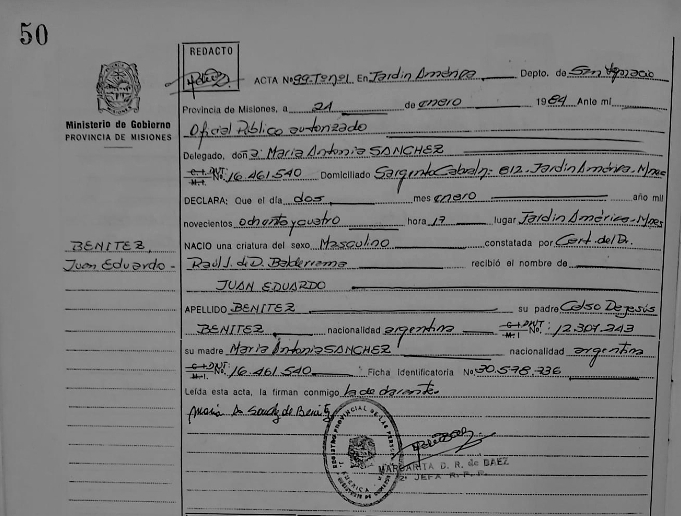 50
REDACTO
ACTA Nº 99. Tº nº1 En Jardin América Depto. de San Ignacio
Provincia de Misiones, a 21 de enero 1984 Ante mí
Oficial Público autorizado
Ministerio de Gobierno
PROVINCIA DE MISIONES
Delegado, doña: Maria Antonia SANCHEZ
DNI Nº. 16.461.540 Domiciliado Sargento Cabral nº 812. Jardin América - Mnes
DECLARA: Que el día dos mes enero año mil
novecientos ochenta y cuatro hora 17 lugar Jardin América - Mnes
BENITEZ,
Juan Eduardo -
NACIO una criatura del sexo Masculino constatada por Cert. del Dr.
Raúl J. d. D. Balderrama recibió el nombre de
JUAN EDUARDO
APELLIDO BENITEZ su padre Celso Dejesús
BENITEZ nacionalidad argentina DNI Nº. 12.307.243
su madre Maria Antonia SANCHEZ nacionalidad argentina
DNI Nº. 16.461.540 Ficha identificatoria No. 30.578.736
Leída esta acta, la firman conmigo la declarante.
Maria A Sanchez de Benitez
REGISTRO PROVINCIAL DE LAS PERSONAS
MARGARITA D. R. de BAEZ
2º JEFA R. P. P.